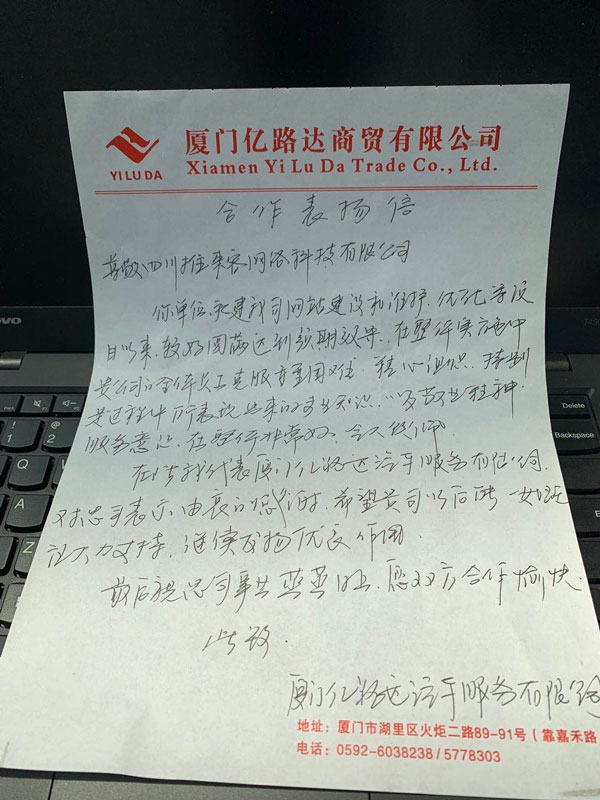 YILUDA
厦门亿路达商贸有限公司
Xiamen Yi Lu Da Trade Co., Ltd.
合作表扬信
尊敬四川推来客网络科技有限公司
你单位承建我司网站建设和维护、优化等项
目以来,较好圆满达到预期效果,在整个实施中
贵公司的全体员工克服重重困难、精心组织、特别
是过程中所表现出来的专业知识、以及敬业精神,
服务意识,在整行非常好,令人佩服
在此我代表厦门亿路达汽车服务有限公司
对您司表示由衷的感谢,希望贵司以后能一如既
往大力支持,继续发扬优良作用
最后祝您司事业蒸蒸日上,愿双方合作愉快.
此致.
厦门亿路达汽车服务有限公司
地址:厦门市湖里区火炬二路89-91号(靠嘉禾路
电话:0592-6038238/5778303
Delete
Backspace